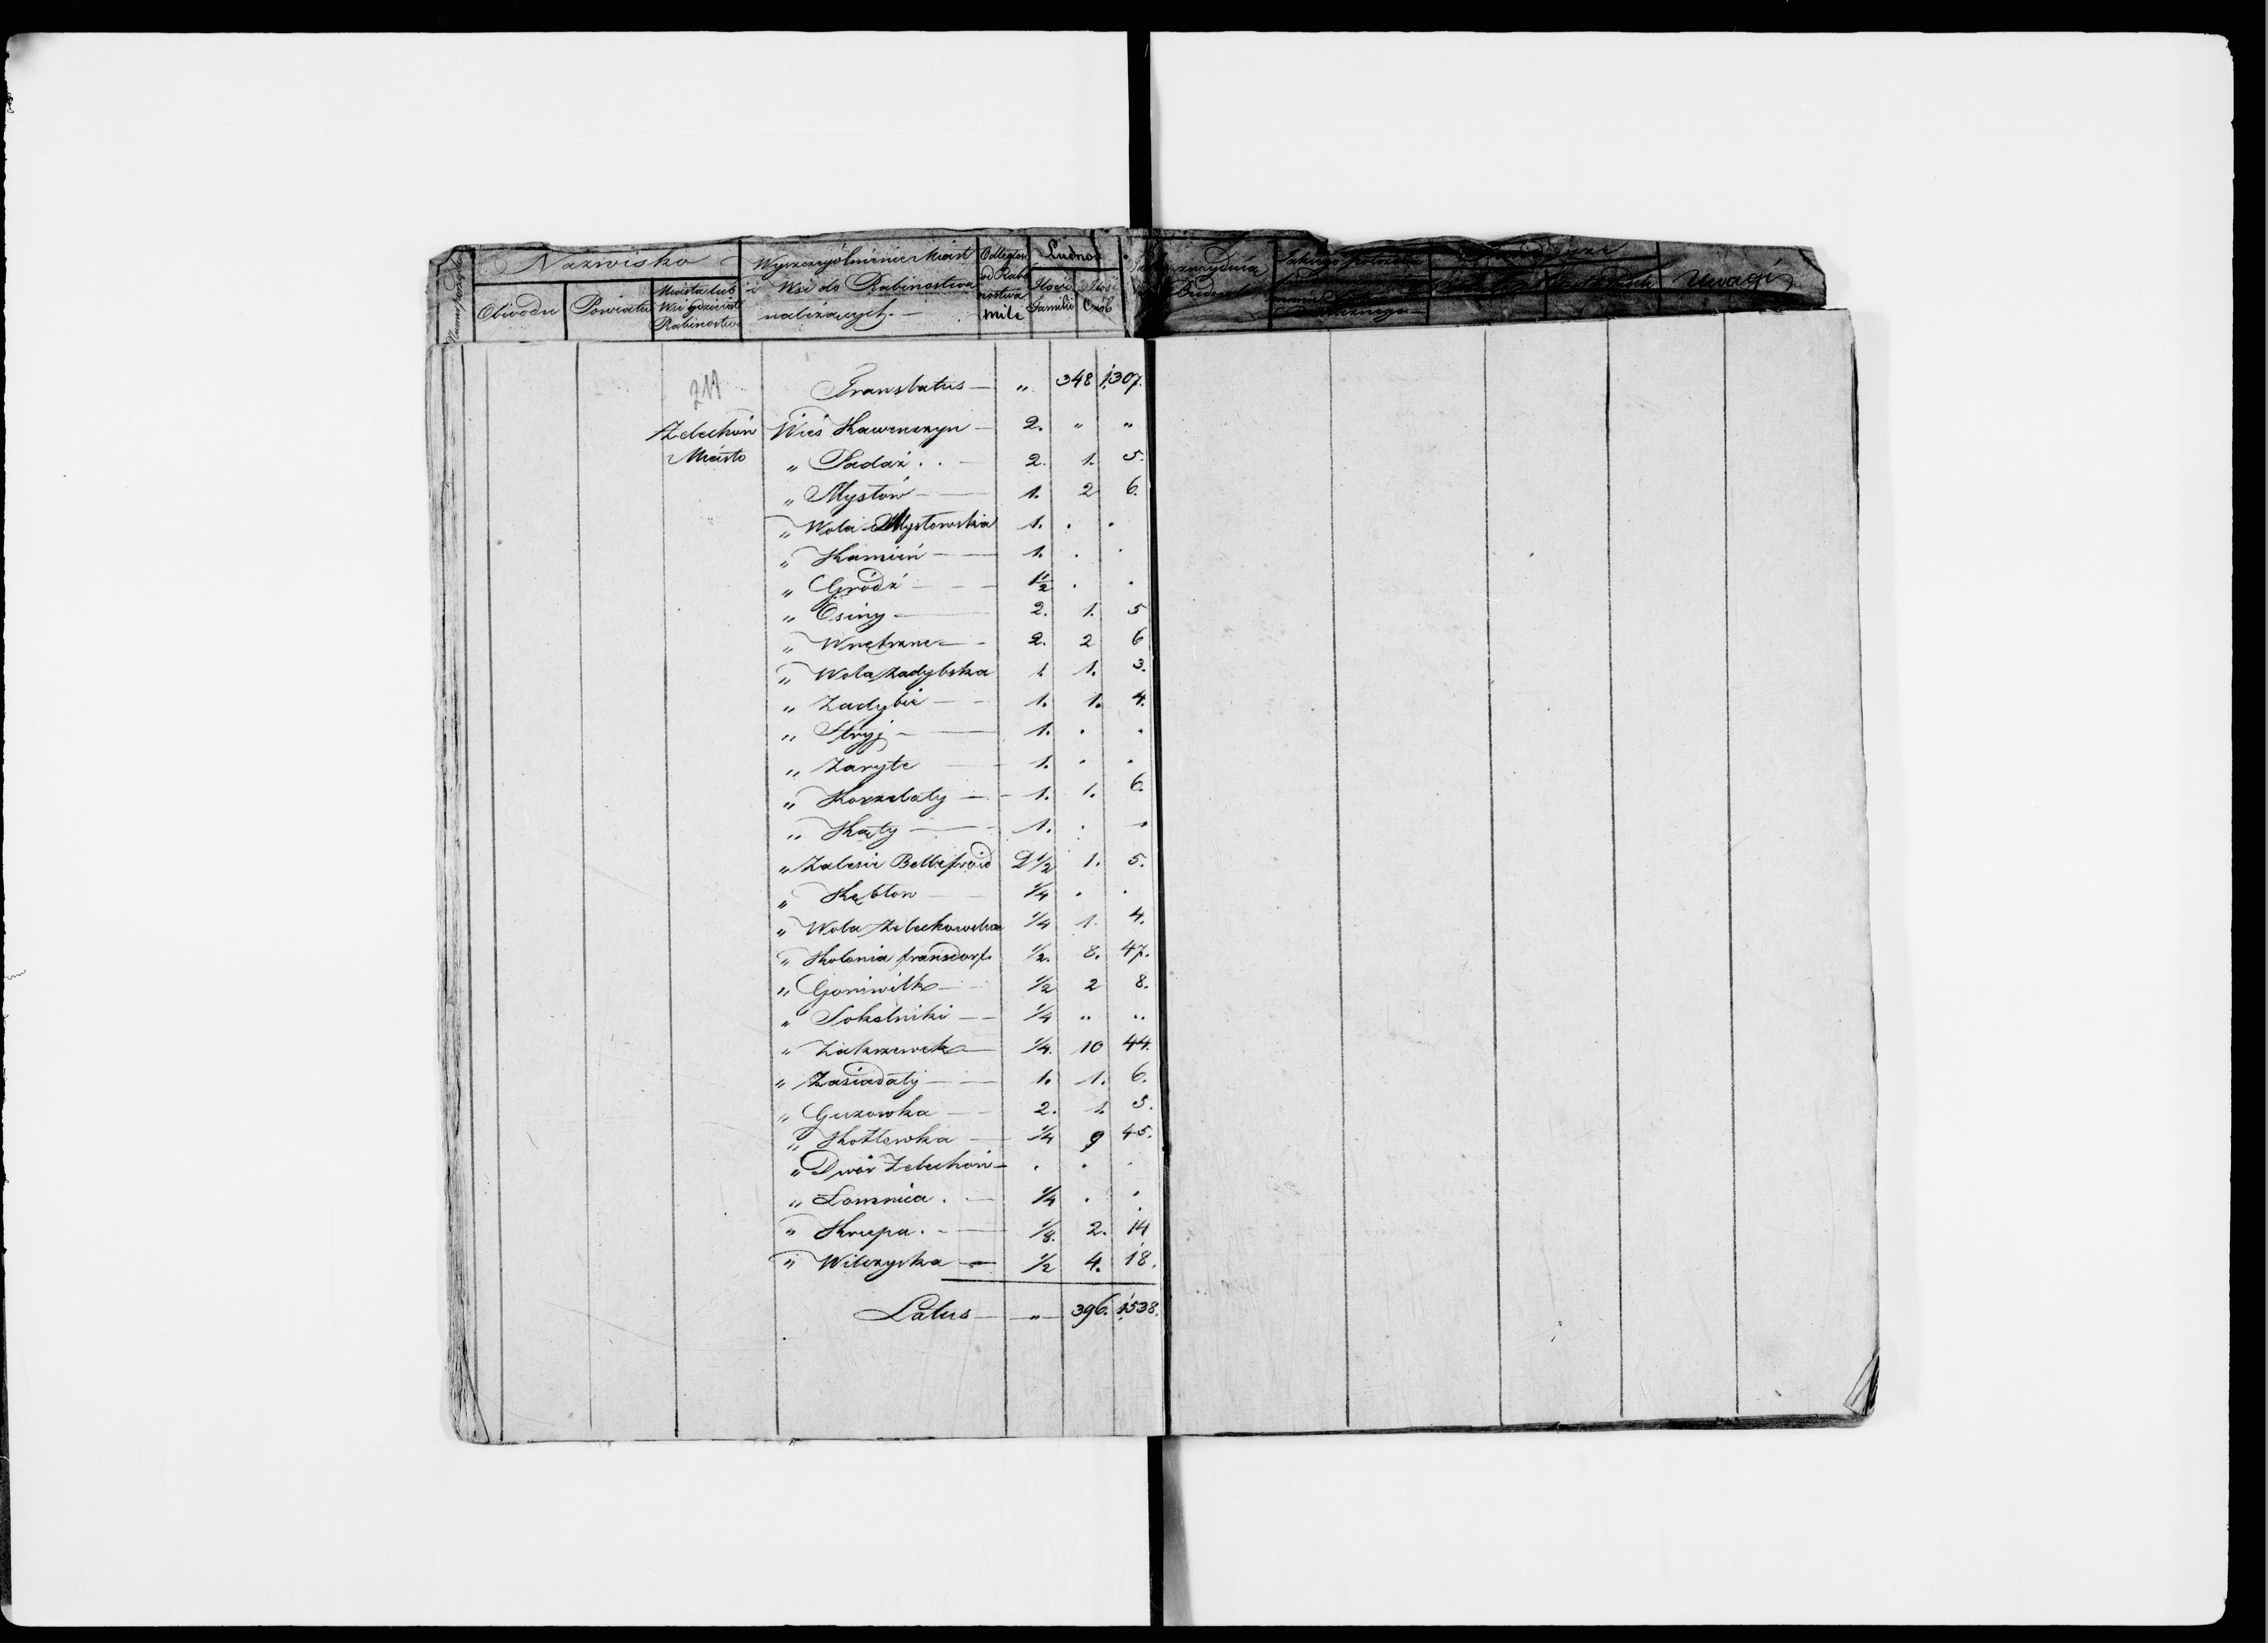 Nazwisko
Obwodu
Powiatu
Miasta lub
Wsi gdzie jest
Rabinostwo
Wyszczególnienie Miast
i Wsi do Rabinostwa
należących. —
Odległość
od Rabi
nostwa
mile
Ludnoś
Ilość
Familii
Ilość
Osób
Uwagi
Translatus — „ 348 1,307.
Żelechów Wieś Kawenczyn — 2. „ „
Miasto „ Padaź . . — 2. 1. 5.
„ Mysłów — — 1. 2 6.
„ Wola Mysłowska 1. . .
„ Kamień — — 1. . .
„ Gródź — — 1 1/2 . .
„ Osiny — — 2. 1. 5
„ Wnętrzne — - 2. 2 6
„ Wola Zadybska 1 1. 3.
„ Zadybie — - 1. 1. 4.
„ Stryj — — 1. . .
„ Zaryte — 1. . .
„ Korzelaty — - 1. 1. 6.
„ Kąty — — 1. . .
„ Zalesie 2 1/2 1. 5.
„ Kębłow — 1/4 . .
„ Wola Żelechowska 1/4 1. 4.
„ Kolonia fransdorf. 1/2. 8. 47.
„ Goniwilk — 1/2 2 8.
„ Sokolniki — — 1/4 „ „
„ Zakrzewek — 1/4. 10 44.
„ Zasiadały — — 1. 1. 6.
„ Guzowka — 2. 1. 5.
„ Kotlowka — 1/4 9 45.
„ Dwór Żelechów — . . .
„ Łomnica . — 1/4 . .
„ Krupa . — 1/8. 2. 14
„ Wilczyska — 1/2 4. 18.
Latus — „ 396. 1,538.